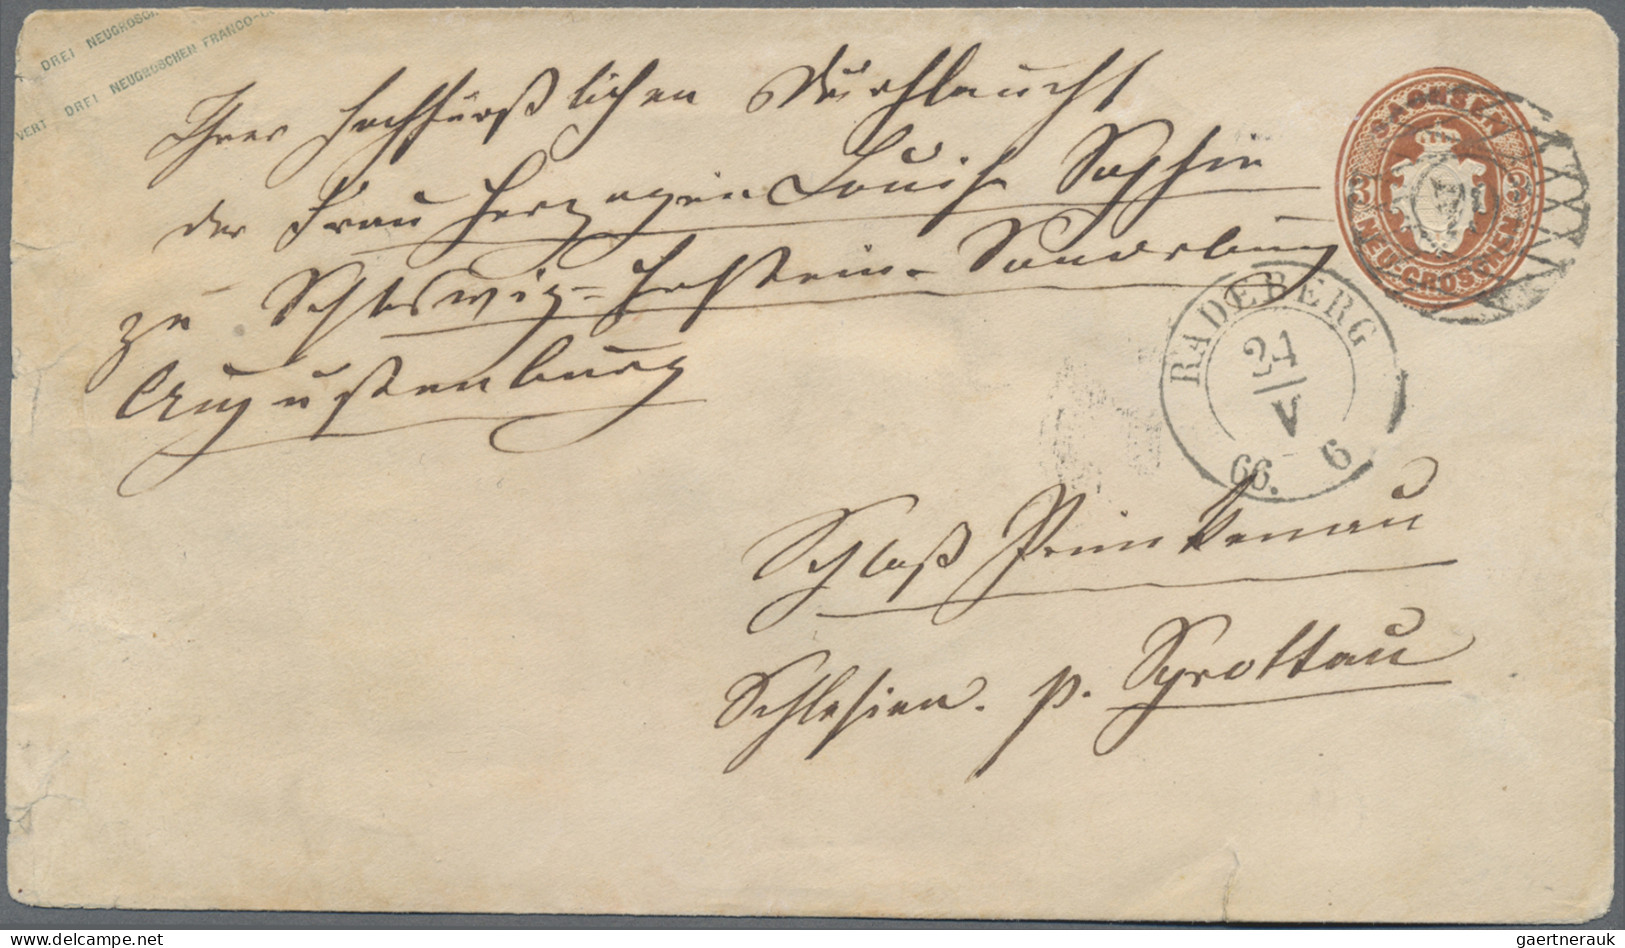 DREI NEUGROSCH
VERT DREI NEUGROSCHEN FRANCO-C
SACHSEN
3 3
NEU-GROSCHEN
Ihrer Hochfürstlichen Durchlaucht
der Frau Herzogin Louise Sophie
zu Schleswig-Holstein-Sonderburg
Augustenburg
RADEBERG
24
V
66. 6
Schloß Primkenau
Schlesien. p. Sprottau
gaertnerauk